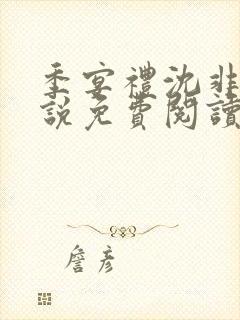 季宴禮沈非
說免費閱讀
詹彥